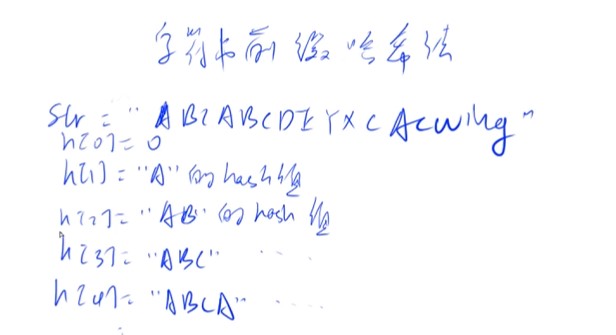 字符串前缀哈希法
Str = "ABCABCDEYXCAcwing"
h[0] = 0
h[1] = "A" 的hash值
h[2] = "AB" 的hash值
h[3] = "ABC" ....
h[4] = "ABCA" ....